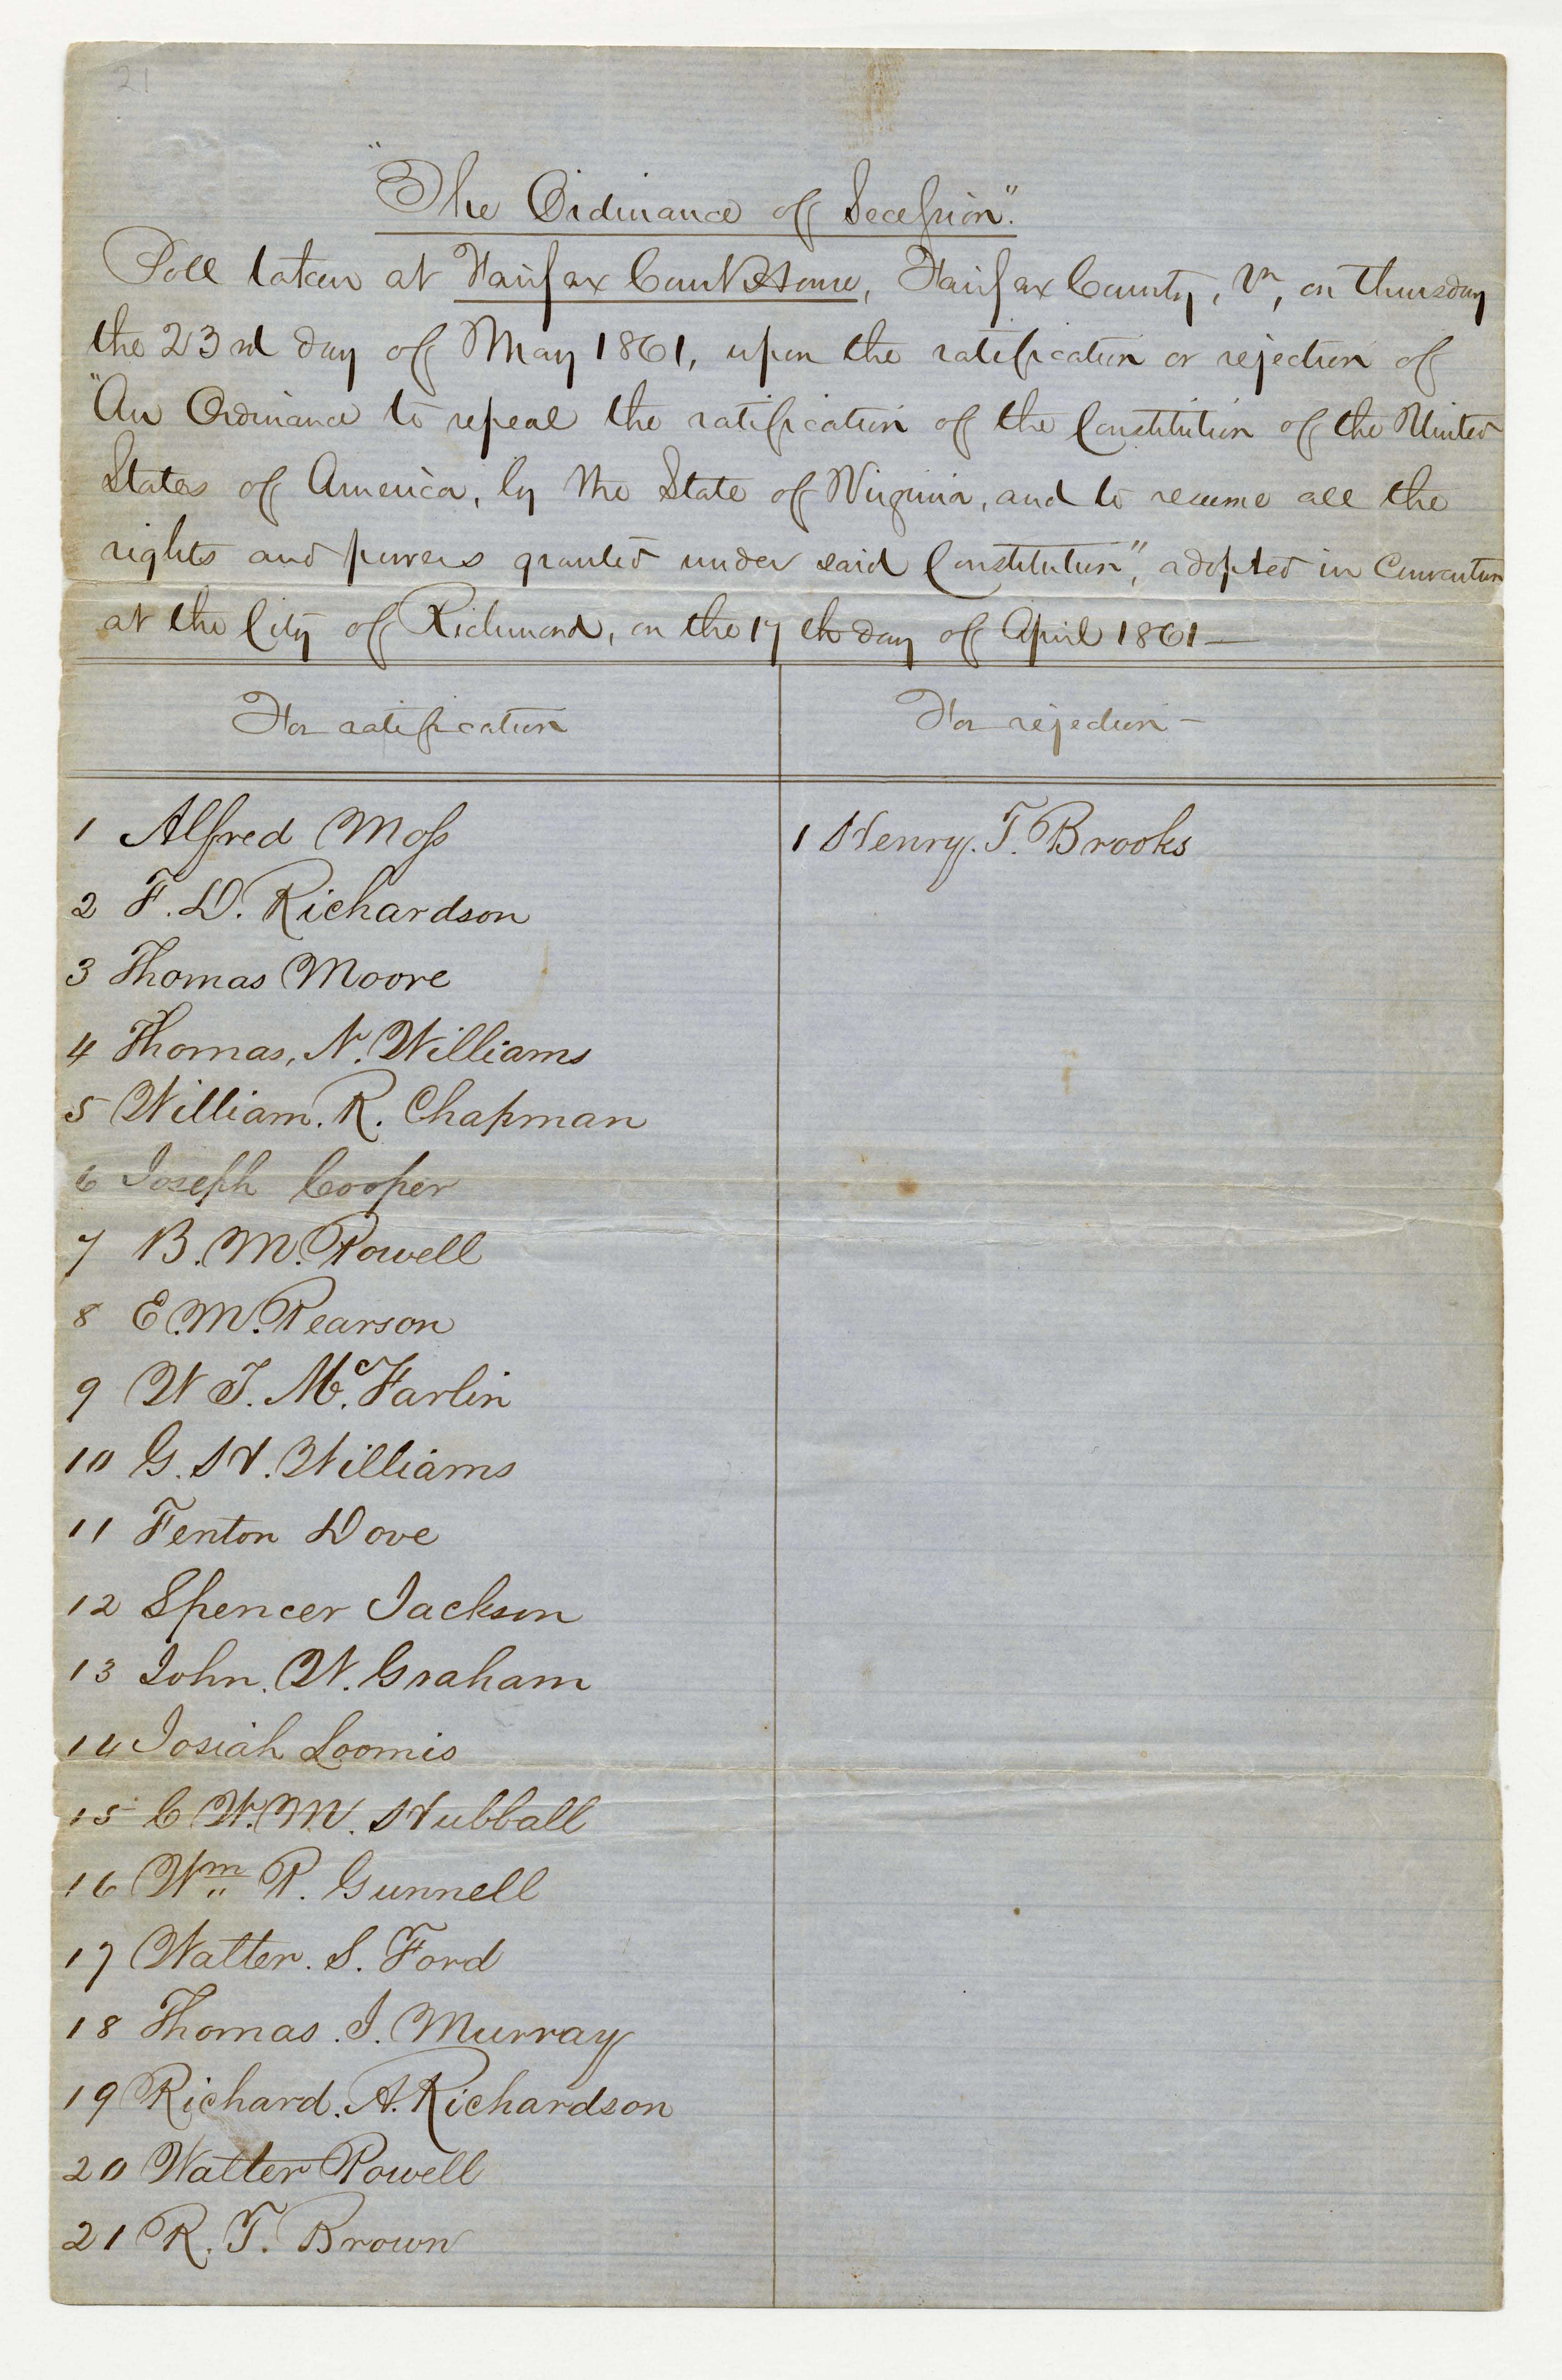 21
"The Ordinance of Secession".
Poll taken at Fairfax Court House, Fairfax County, Va, on Thursday
the 23rd day of May 1861, upon the ratification or rejection of
"An Ordinance to repeal the ratification of the Constitution of the United
States of America, by the State of Virginia, and to resume all the
rights and powers granted under said Constitution", adopted in Convention
at the City of Richmond, on the 17th day of April 1861—
For ratification
For rejection—
1 Alfred Moss
1 Henry. T. Brooks
2 F. D. Richardson
3 Thomas Moore
4 Thomas, N. Williams
5 William. R. Chapman
6 Joseph Cooper
7 B. M. Powell
8 E. M. Pearson
9 W T. Mc. Farlin
10 G. H. Williams
11 Fenton Dove
12 Spencer Jackson
13 John. W. Graham
14 Josiah Loomis
15 C W. M. Hubball
16 Wm P. Gunnell
17 Walter. S. Ford
18 Thomas. J. Murray
19 Richard. A. Richardson
20 Walter Powell
21 R. T. Brown